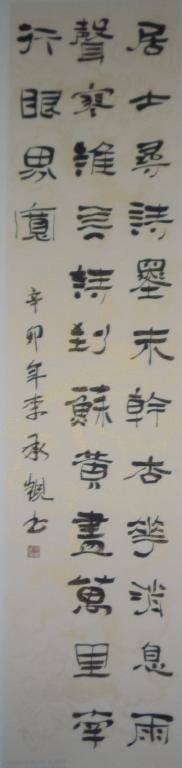 居士尋詩墨未幹杏華消息雨
聲寒誰云詩到蘇黃盡萬里南
行眼界寬
辛卯年李承书